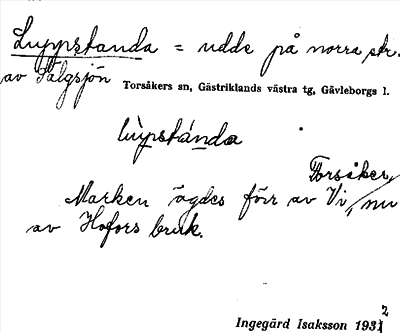 Luppstanda = udde på norra str.
av Fälgsjön
Torsåkers sn, Gästriklands västra tg, Gävleborgs l.
lùpstánda
Torsåker
Marken ägdes förr av Vi, nu
av Hofors bruk.
Ingegärd Isaksson 1932